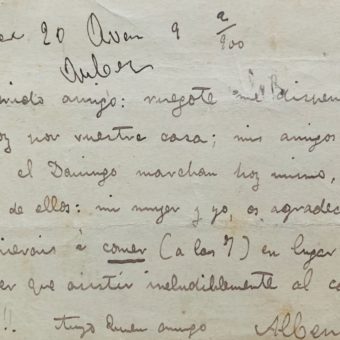 20 Aven 9 2/900
erido amigo: ruegote me dispen
oy por vuestra casa; mis amigos
el Domingo marchan hoy mismo,
de ellos: mi mujer y yo, os agradec
ierais à comer (a las 7) en lugar
er que asistir ineludiblemente al co
!! tuyo buen amigo Alben